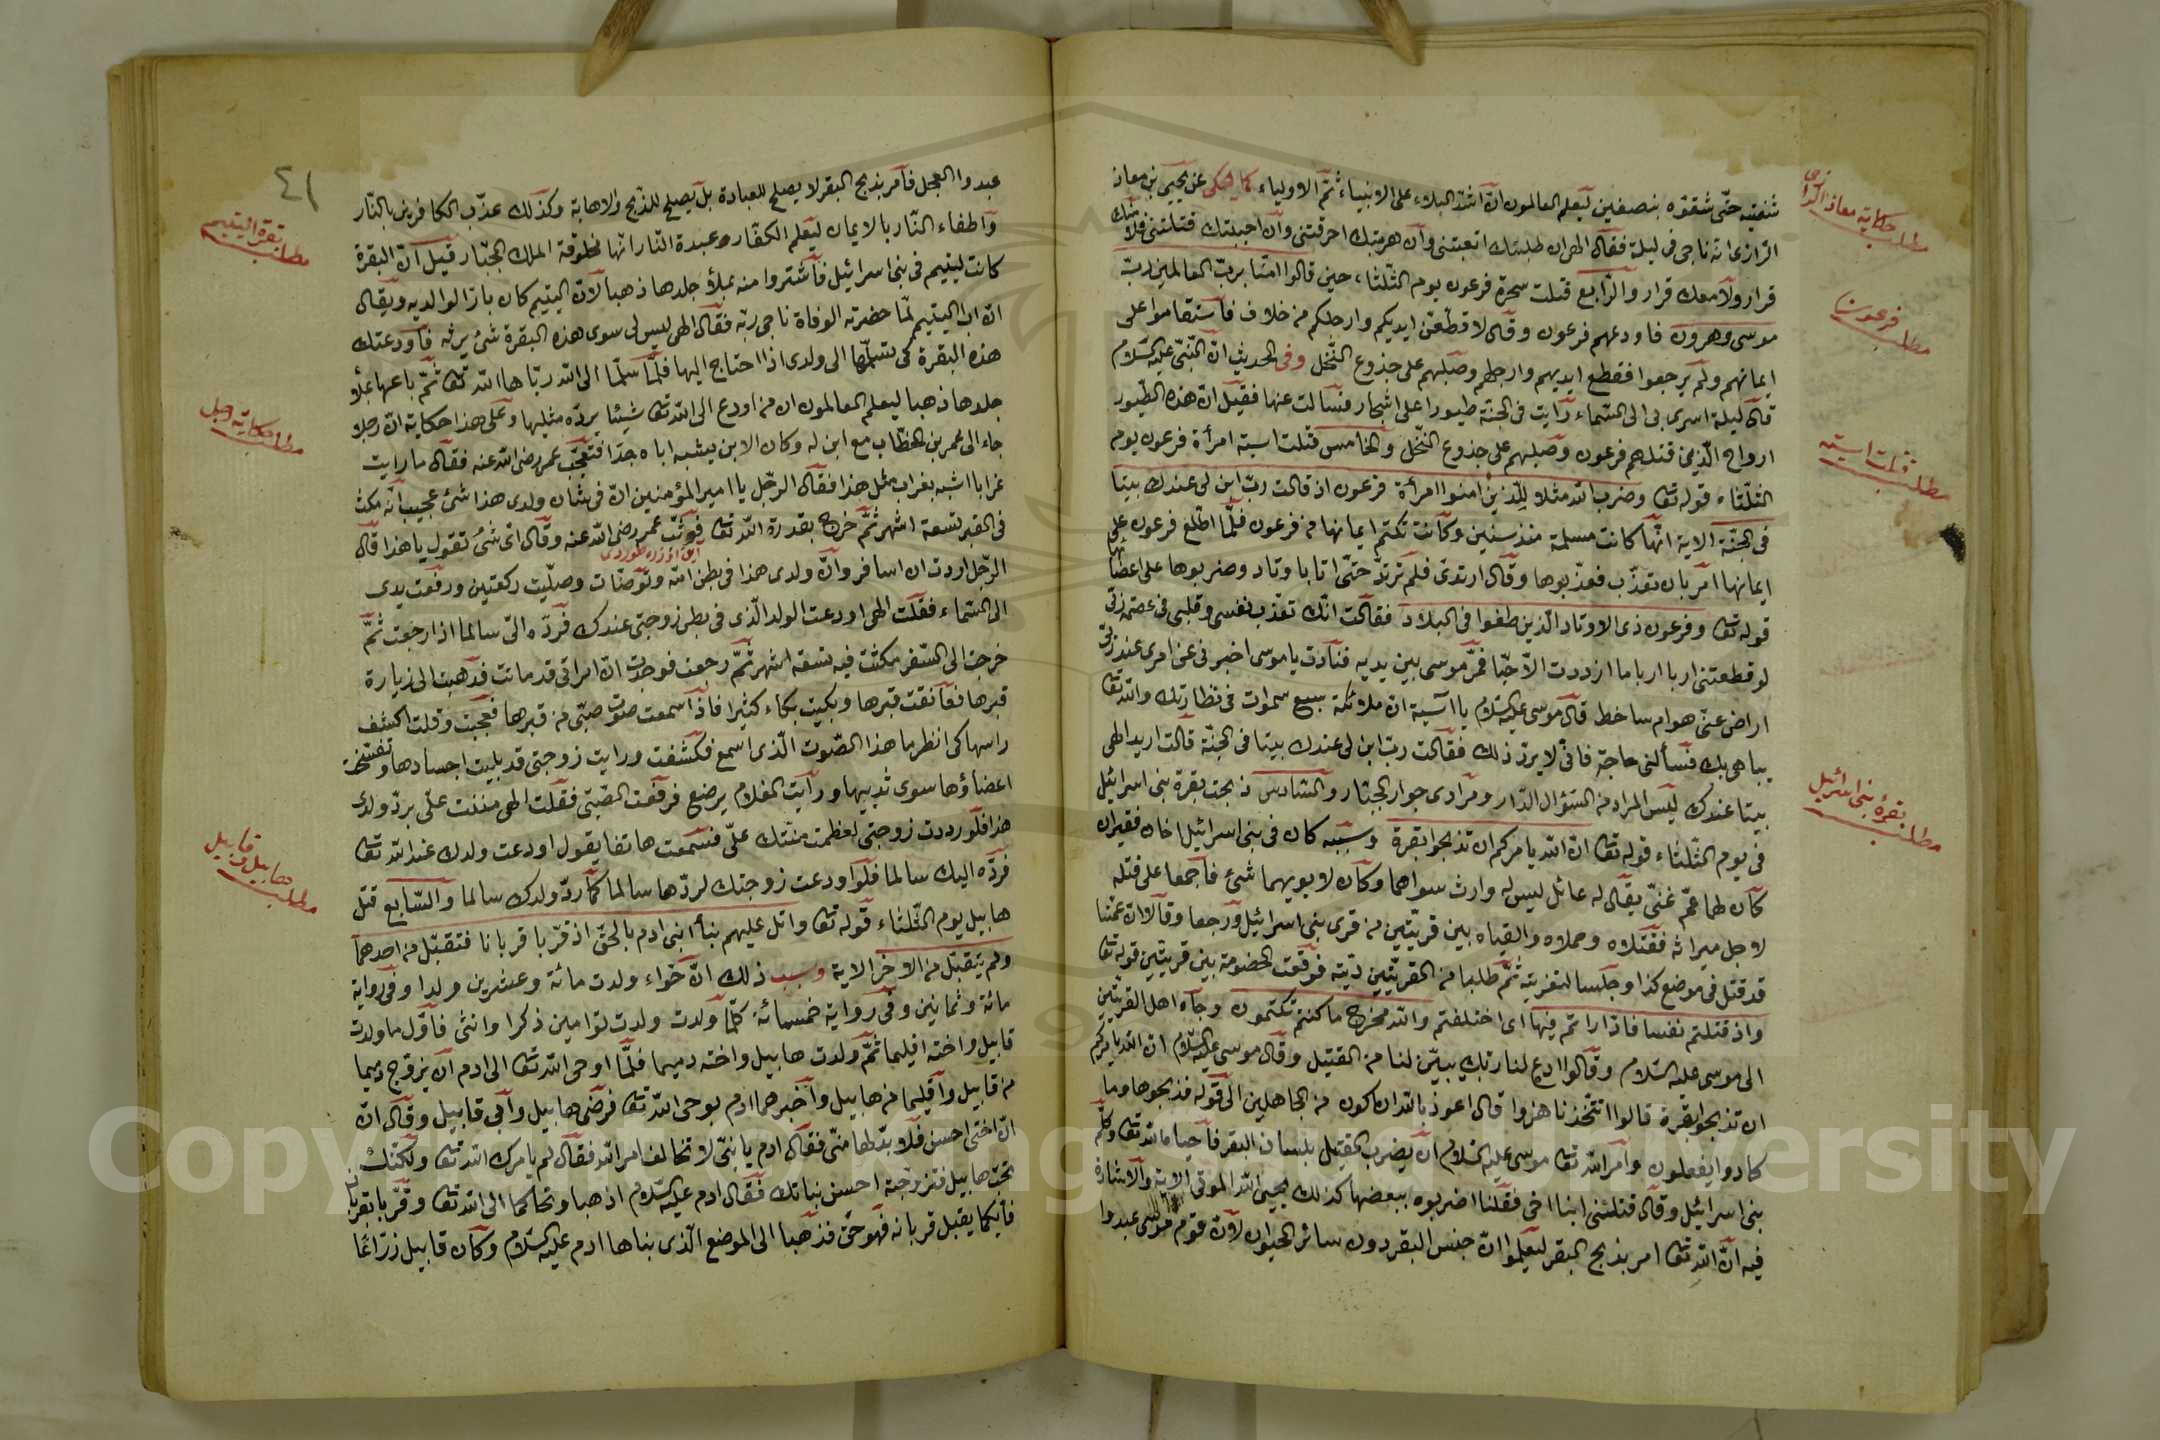 شفتيه حتى شقوه بنصفين ليعلم العالمون ان اشد البلاء على الانبياء ثم الاولياء كما حكى عن يحيى بن معاذ
الرازى انه ناجى فى ليلة فقال الهى ان طلبتك اتعبتنى وان هربتك احرقتنى وان احببتك قتلتنى فلا منك
قرار ولا معك قرار والرابع قتلت سحرة فرعون يوم الثلثاء حين قالوا امنا برب العالمين رب
موسى وهرون فاودعهم فرعون وقال لاقطعن ايديكم وارجلكم من خلاف فاستقاموا على
ايمانهم ولم يرجعوا فقطع ايديهم وارجلهم وصلبهم على جذوع النخل وفى الحديث ان النبى عليه السلام
قال ليلة اسرى بى الى السماء رايت فى الجنة طيورا على اشجار فسالت عنها فقيل ان هذه الطيور
ارواح الذين قتلهم فرعون وصلبهم على جذوع النخل والخامس قتلت اسية امرأة فرعون يوم
الثلثاء قوله تعا وضرب الله مثلا للذين امنوا امرأة فرعون اذ قالت رب ابن لى عندك بيتا
فى الجنة الاية انها كانت مسلمة منذ سنين وكانت تكتم ايمانها من فرعون فلما اطلع فرعون على
ايمانها امر بان تعذب فعذبوها وقال ارتدى فلم ترتد حتى اتا باوتاد وضربوها على اعضائها
قوله تعا وفرعون ذى الاوتاد الذين طغوا فى البلاد فقالت انك تعذب نفسى وقلبى فى عصمة ربى
لو قطعتنى اربا اربا ما ازددت الا حبا فمر موسى بين يديه فنادت يا موسى اخبرنى عن امرى عند ربى
اراض عنى هو ام ساخط قال موسى عليه السلام يا آسية ان ملائكة سبع سموات فى نظارتك والله تعا
يباهى بك فسألنى حاجة فانى لا يرد ذلك فقالت رب ابن لى عندك بيتا فى الجنة قالت اريد الهى
بيتا عندك ليس المراد من السؤال الدار ومرادى جوار الجبار والسادس ذبحت بقرة بنى اسرائيل
فى يوم الثلثاء قوله تعا ان الله يامركم ان تذبحوا بقرة وسببه كان فى بنى اسرائيل اخان فقيران
كان لهما عم غنى يقال له عائل ليس له وارث سواهما وكان لا يوبهما شئ فاجمعا على قتله
لاجل ميراثه فقتلاه وحملاه والقياه بين قريتين من قرى بنى اسرائيل ورجعا وقالا ان عمنا
قد قتل فى موضع كذا وجلسا لتعزيته ثم طلبا من القريتين ديته فوقعت الخصومة بين قريتين قوله تعا
واذ قتلتم نفسا فاذاراتم فيها اى اختلفتم والله مخرج ما كنتم تكتمون وجاء اهل القريتين
الى موسى عليه السلام وقالوا ادع لنا ربك يبين لنا من القتيل وقال موسى عليه السلام ان الله يامركم
ان تذبحوا بقرة قالوا اتتخذنا هزوا قال اعوذ بالله ان اكون من الجاهلين الى قوله فذبحوها وما
كادوا يفعلون وامر الله تعا موسى عليه السلام ان يضرب القتيل بلسان البقر فاحياه الله تعا وكلم
بنى اسرائيل وقال قتلنى ابنا اخى فقلنا اضربوه ببعضها كذلك يحيى الله الموتى الاية والاشارة
فيه ان الله تعا امر بذبح البقر ليعلموا ان جنس البقر دون سائر الحيوان لان قوم موسى عبدوا
مطلب حكاية معاذ الرازى
مطلب فرعون
مطلب قتلت اسية
مطلب بقرة بنى اسرائيل
٤١
عبدوا العجل فامر بذبح البقر لا يصلح للعبادة بل يصلح للذبح والاهانة وكذلك عذب الكافرين بالنار
واطفاء النار بالايمان ليعلم الكفار وعبدة النار انها مخلوقة الملك الجبار قيل ان البقرة
كانت ليتيم فى بنى اسرائيل فاشتروا منه بملأ جلدها ذهبا لان اليتيم كان بارا لوالديه ويقال
ان اب اليتيم لما حضرته الوفاة ناجى ربه فقال الهى ليس لى سوى هذه البقرة شئ يرثه فاودعتك
هذه البقرة كى تسلمها الى ولدى اذا احتاج اليها فلما سلما الى الله رباها الله تعا ثم باعها بملأ
جلدها ذهبا ليعلم العالمون ان من اودع الى الله تعا شيئا يرده مثليها وعلى هذا حكاية ان رجلا
جاء الى عمر بن الخطاب مع ابن له وكان الابن يشبه اباه جدا فتعجب عمر رضى الله عنه فقال ما رايت
غرابا اشبه بغراب مثل هذا فقال الرجل يا امير المؤمنين ان فى شان ولدى هذا شئ عجيب انه مكث
فى القبر تسعة اشهر ثم خرج بقدرة الله تعا فوثب عمر رضى الله عنه وقال اى شئ تقول يا هذا قال
الرجل اردت ان اسافر وان ولدى هذا فى بطن امه وتوضات وصليت ركعتين ورفعت يدى
الى السماء فقلت الهى اودعت الولد الذى فى بطن زوجتى عندك فرده الى سالما اذا رجعت ثم
خرجت الى السفر مكثت فيه تسعة اشهر ثم رجعت فوجدت ان امراتى قد ماتت فذهبت الى زيارة
قبرها فعانقت قبرها وبكيت بكاء كثيرا فاذا سمعت صوت صبى من قبرها فعجبت وقلت اكشف
راسها كى انظر ما هذا الصوت الذى اسمع فكشفت ورايت زوجتى قد بليت اجسادها وتفسخت
اعضاؤها سوى ثدييها ورايت الغلام يرضع فرفعت الصبى فقلت الهى مننت على برد ولدى
هذا فلو رددت زوجتى لعظمت منتك على فسمعت هاتفا يقول اودعت ولدك عند الله تعا
فرده اليك سالما فلو اودعت زوجتك لردها سالما كما رد ولدك سالما والسابع قتل
هابيل يوم الثلثاء قوله تعا واتل عليهم نبأ ابنى ادم بالحق اذ قربا قربانا فتقبل من احدهما
ولم يتقبل من الاخر الاية وسبب ذلك ان حواء ولدت مائة وعشرين ولدا وفى رواية
مائة وثمانين وفى رواية خمسمائة كلما ولدت ولدت توامين ذكرا وانثى فاول ما ولدت
قابيل واخته اقليما ثم ولدت هابيل واخته دميما فلما اوحى الله تعا الى ادم ان يزوج دميما
من قابيل واقليما من هابيل واخبرهما ادم بوحى الله تعا فرضى هابيل وابى قابيل وقال ان
ان اختى احسن فلا بدلها منى فقال ادم يا بنى لا تخالف امر الله فقال لم يامرك الله تعا ولكنك
تحب هابيل فتزوجه احسن بناتك فقال ادم عليه السلام اذهبا وتحاكما الى الله تعا وقربا بقربان
فايكما يقبل قربانه فهو حق فذهبا الى الموضع الذى بناها ادم عليه السلام وكان قابيل زراعا
مطلب بقرة اليتيم
مطلب حكاية رجل
مطلب هابيل وقابيل
Copyright © King Saud University